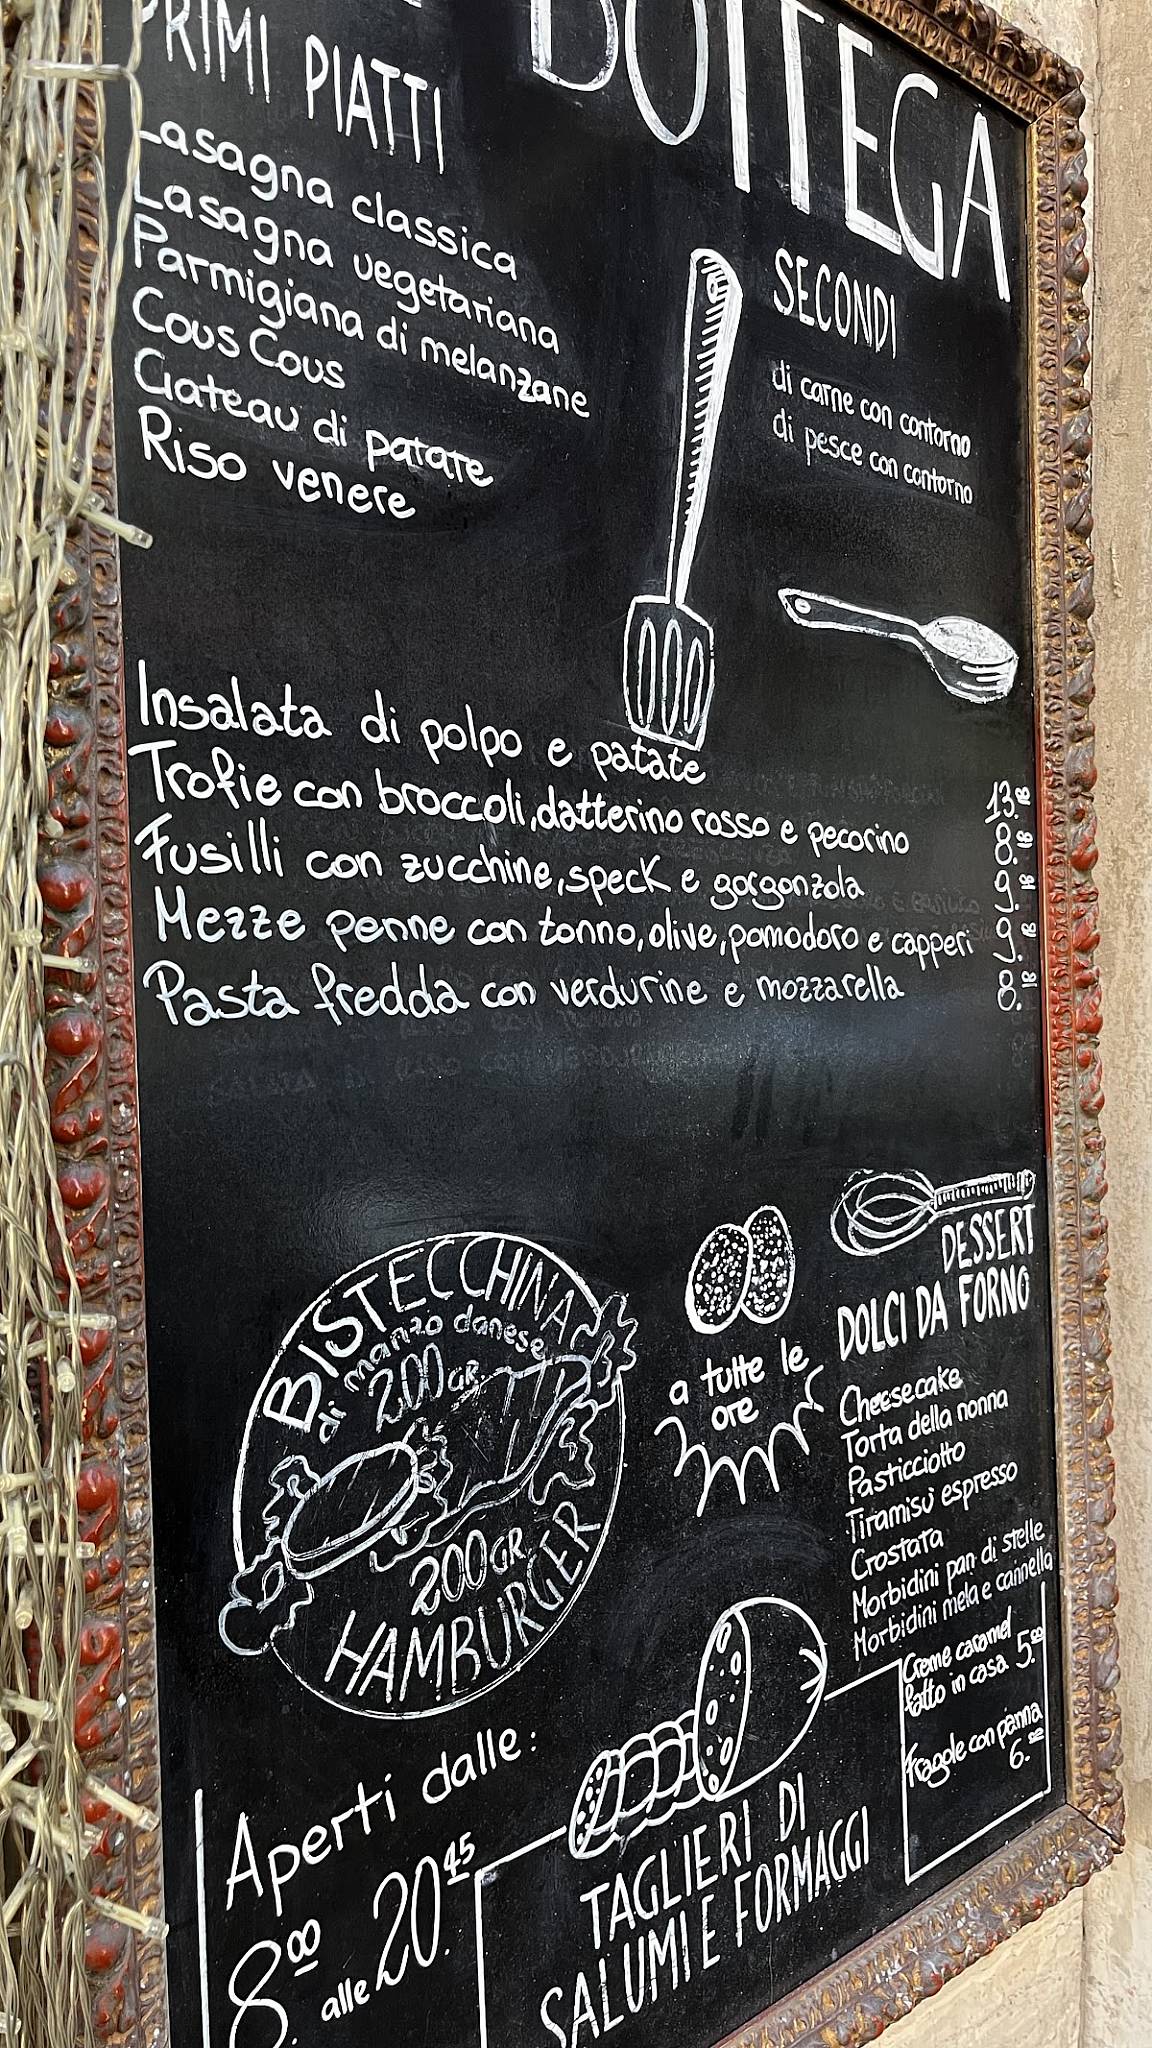 BOTTEGA
PRIMI PIATTI
Lasagna classica
Lasagna vegetariana
Parmigiana di melanzane
Cous Cous
Gateau di patate
Riso venere
SECONDI
di carne con contorno
di pesce con contorno
Insalata di polpo e patate 13.00
Trofie con broccoli, datterino rosso e pecorino 8.00
Fusilli con zucchine, speck e gorgonzola 9.00
Mezze penne con tonno, olive, pomodoro e capperi 9.00
Pasta fredda con verdurine e mozzarella 8.00
BISTECCHINA
di manzo danese
200 GR
200 GR
HAMBURGER
a tutte le
ore
DESSERT
DOLCI DA FORNO
Cheesecake
Torta della nonna
Pasticciotto
Tiramisù espresso
Crostata
Morbidini pan di stelle
Morbidini mela e cannella
Creme caramel
fatto in casa 5.00
Fragole con panna
6.00
Aperti dalle:
8.00 alle 20.45
TAGLIERI DI
SALUMI E FORMAGGI